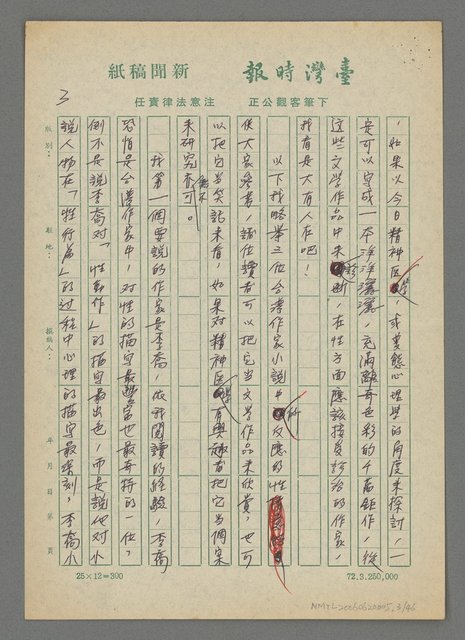 臺灣時報 新聞稿紙
下筆客觀公正 注意法律責任
3
版別：
駐地：
撰稿人：
年 月 日第 頁
，如果以今日精神醫學，或變態心理學的角度來探討，一
定可以寫成一本洋洋灑灑，充滿離奇色彩的千萬鉅作，從
這些文學作品中來診斷，在性方面應該接受診治的作家，
我看是大有人在吧！
以下我略舉三位台灣作家小說中所反應的性
供大家參考，諸位讀者可以把它當文學作品來欣賞，也可
以把它當笑話來看，如果對精神醫學有興趣者把它當個案
來研究亦無不可。
我第一個要說的作家是李喬，依我閱讀的經驗，李喬
恐怕是台灣作家中，對性的描寫最豐富也最奇特的一位，
倒不是說李喬對「性動作」的描寫最出色，而是說他對小
說人物在「性行為」的過程中心理的描寫最深刻，李喬小
25×12=300
72.3.250,000
NMTL20060620005.3/46